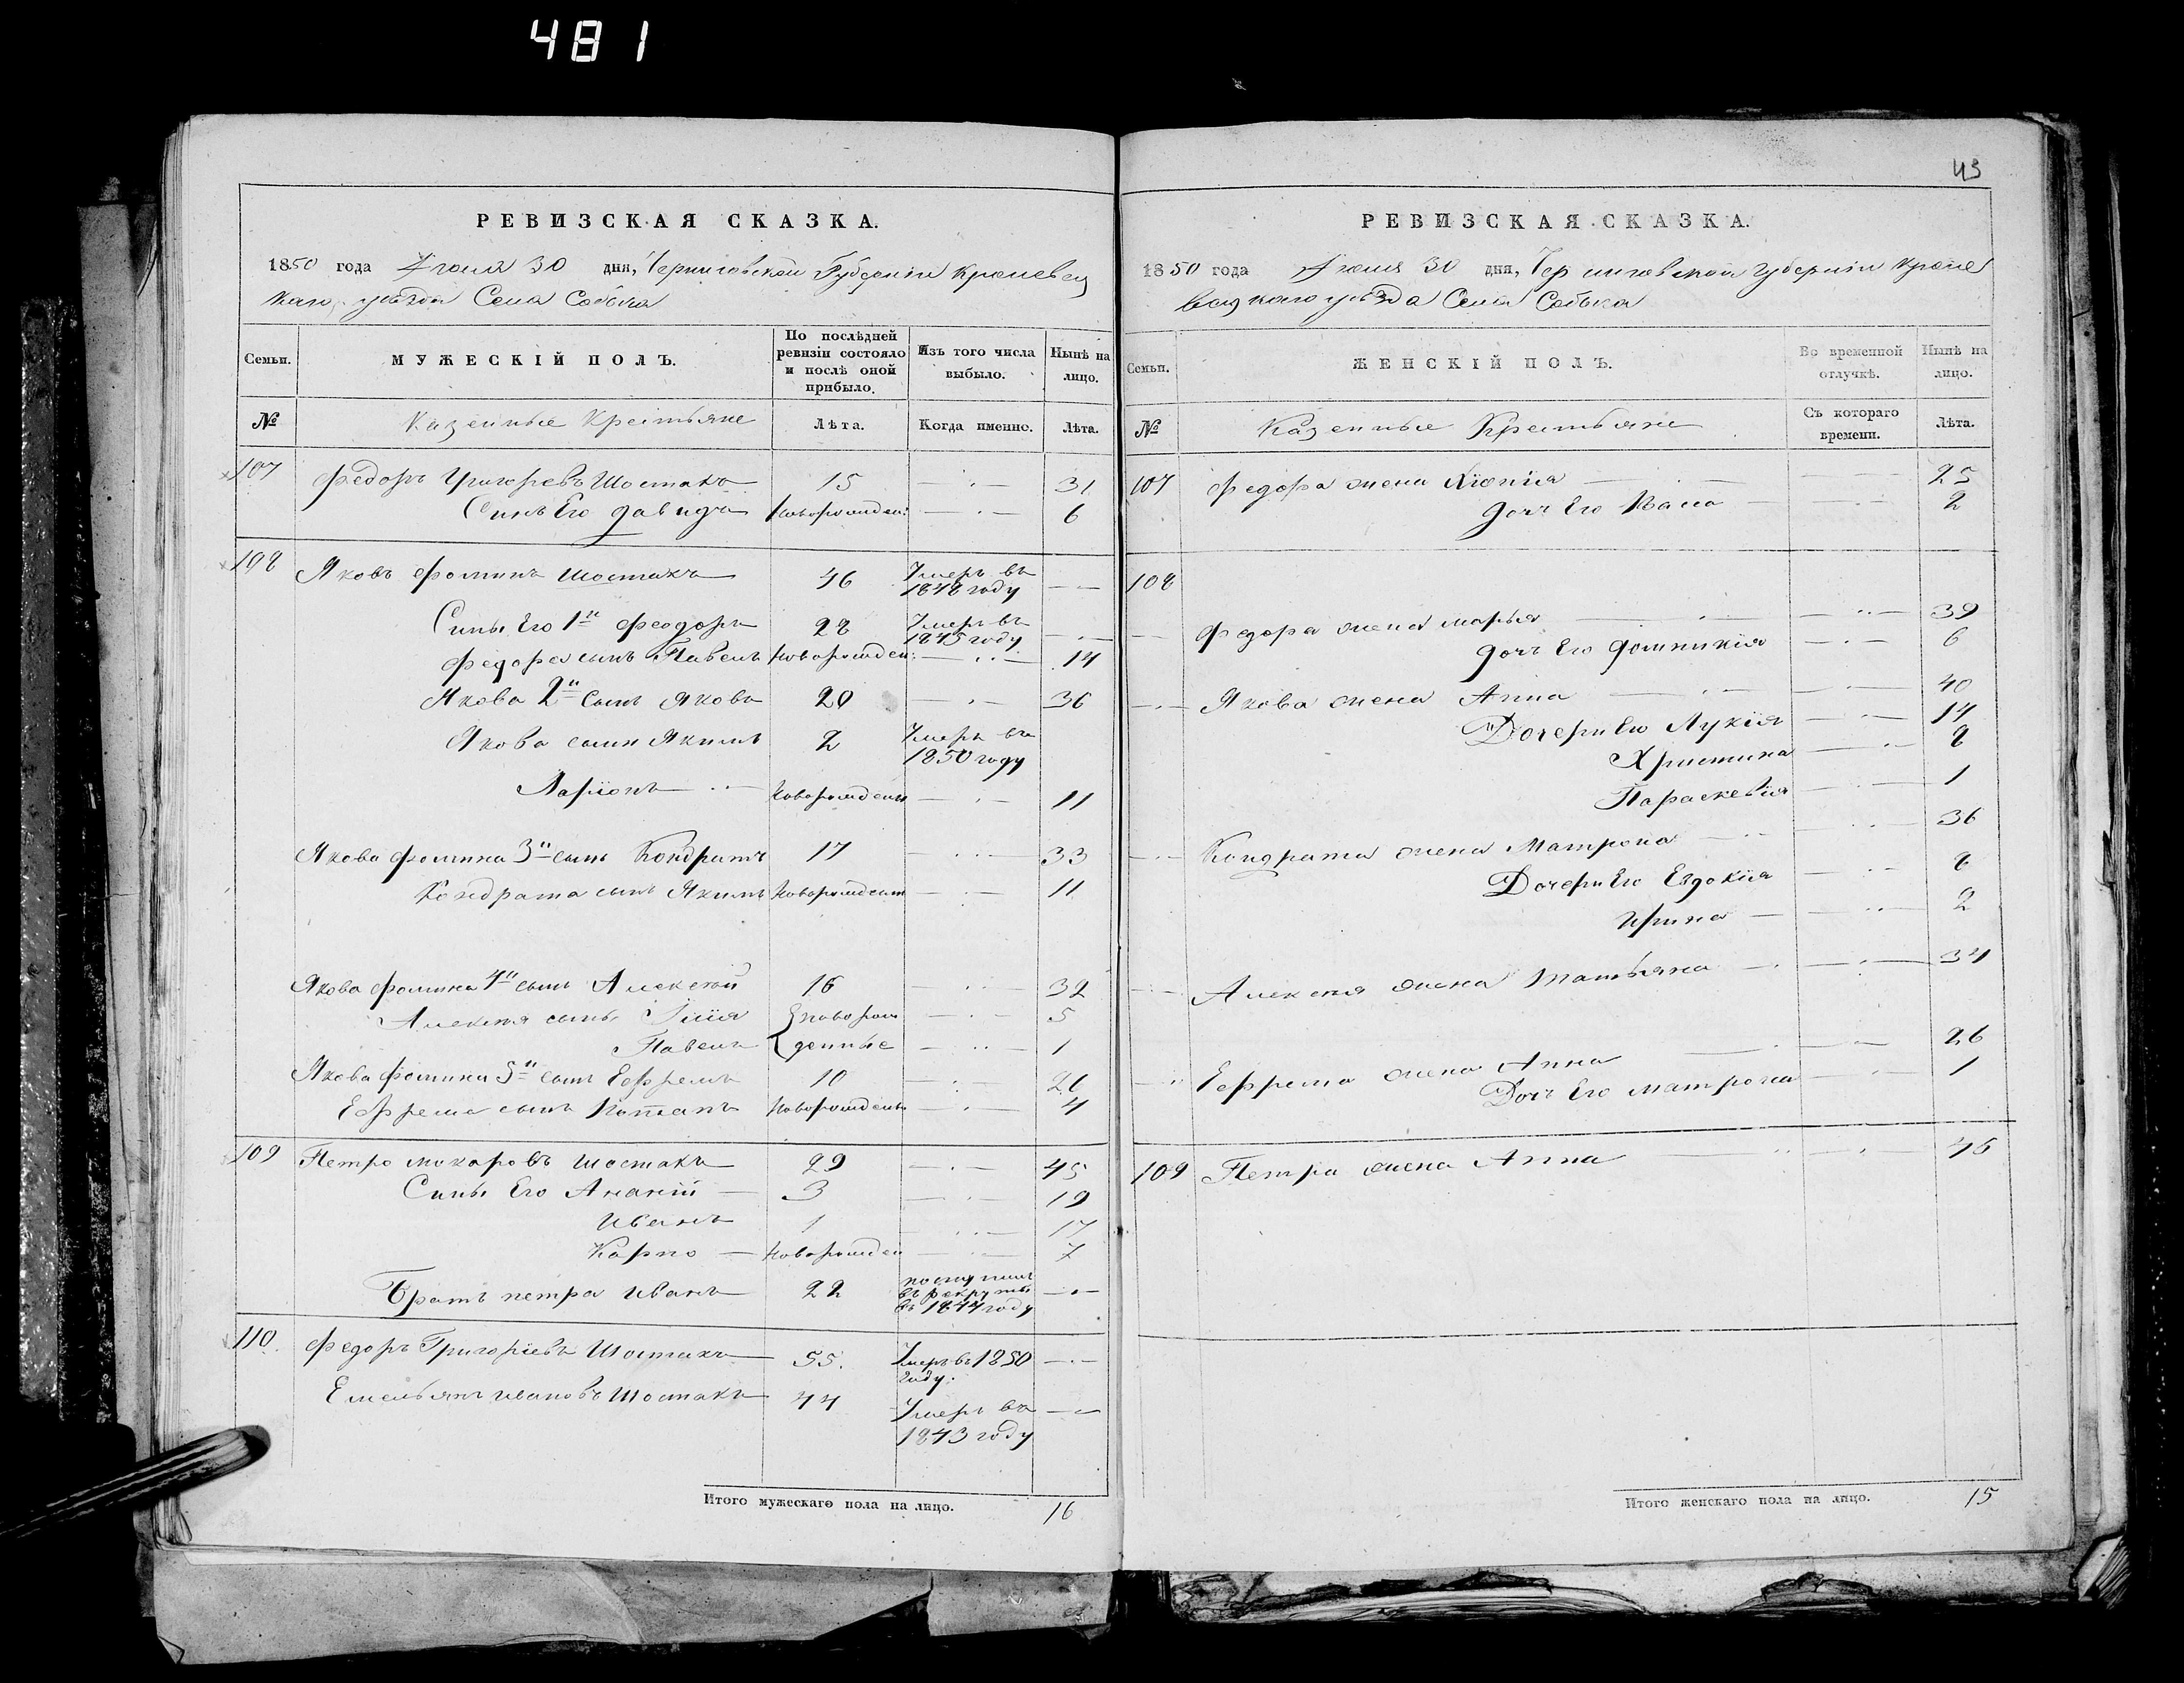 481
43
РЕВИЗСКАЯ СКАЗКА.
1850 года Июля 30 дня, Черниговской Губерніи Кролевец
каго уѣзда Села Собыча
Семьи. МУЖЕСКІЙ ПОЛЪ. По послѣдней ревизіи состояло и послѣ оной прибыло. Изъ того числа выбыло. Нынѣ на лицо.
№ Казенные Крестьяне Лѣта. Когда именно. Лѣта.
107 Федоръ Григоревъ Шостакъ 15 — . — 31
Синъ Его Давидъ Новорожден: — . — 6
108 Яковъ Фоминъ Шостакъ 46 Умеръ въ 1848 году — —
Сины Его 1й Феодоръ 28 Умеръ въ 1845 году — . —
Федора сынъ Павелъ Новорожден: — .. — 14
Якова 2й Сынъ Яковъ 20 — . — 36
Якова сынъ Якимъ 2 Умеръ въ 1850 году
Ларіонъ — .. — Новорожденъ — . — 11
Якова Фомина 3й сынъ Кондратъ 17 — . . — 33
Кондрата сынъ Якимъ Новорожден — . — 11
Якова Фомина 4й сынъ Алексѣй 16 — . — 32
Алексѣя сынъ Ілія { новорож — . — 5
Павелъ { денные — .. — 1
Якова Фомина 5й сынъ Ефремъ 10 — . 26
Ефрема сынъ Потапъ Новорожденъ — . — 4
109 Петро Макаровъ Шостакъ 29 — . — 45
Сины Его Ананій — 3 — . — 19
Иванъ 1 — . . — 17
Карпо — Новорожден — . — 7
Братъ Петра Иванъ 22 поступил въ рекруты въ 1844 году — . —
110. Федоръ Григоріевъ Шостакъ 55. Умеръ въ 1850 году. — . —
Емельянъ Ивановъ Шостакъ 44 Умеръ въ 1843 году — —
Итого мужескаго пола на лицо. 16
РЕВИЗСКАЯ СКАЗКА.
1850 года Июля 30 дня, Черниговской Губерніи Кроле
вецкаго уѣзда Села Собыча
Семьи. ЖЕНСКІЙ ПОЛЪ. Во временной отлучкѣ. Нынѣ на лицо.
№ Казенные Крестьяне Съ котораго времени. Лѣта.
107 Федора жена 25
Дочъ Его 2
108
Федора жена Марья — .. — 39
Дочъ Его Домникія — . — 6
Якова жена Анна — . — 40
Дочери Его Лукія — . — 14
Христина — .. — 8
Параскевія — . — 1
Кондрата жена Матрона 36
Дочери Его Евдокія — . — 8
Ирина — — .. — 2
Алексѣя жена Татьяна — . — . — 34
Ефрема жена Анна — . — 26
Дочъ Его Матрона — . — 1
109 Петра жена Анна — . — 46
Итого женскаго пола на лицо. 15